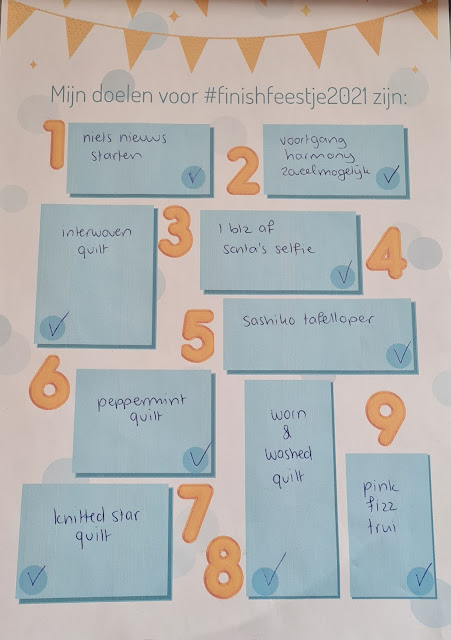 Mijn doelen voor #finishfeestje2021 zijn:
1
niets nieuws
starten
2
voortgang
harmony
zoveelmogelijk
3
interwoven
quilt
4
1 blz af
santa's selfie
5
sashiko tafelloper
6
peppermint
quilt
7
knitted star
quilt
8
worn
&
washed
quilt
9
pink
fizz
trui